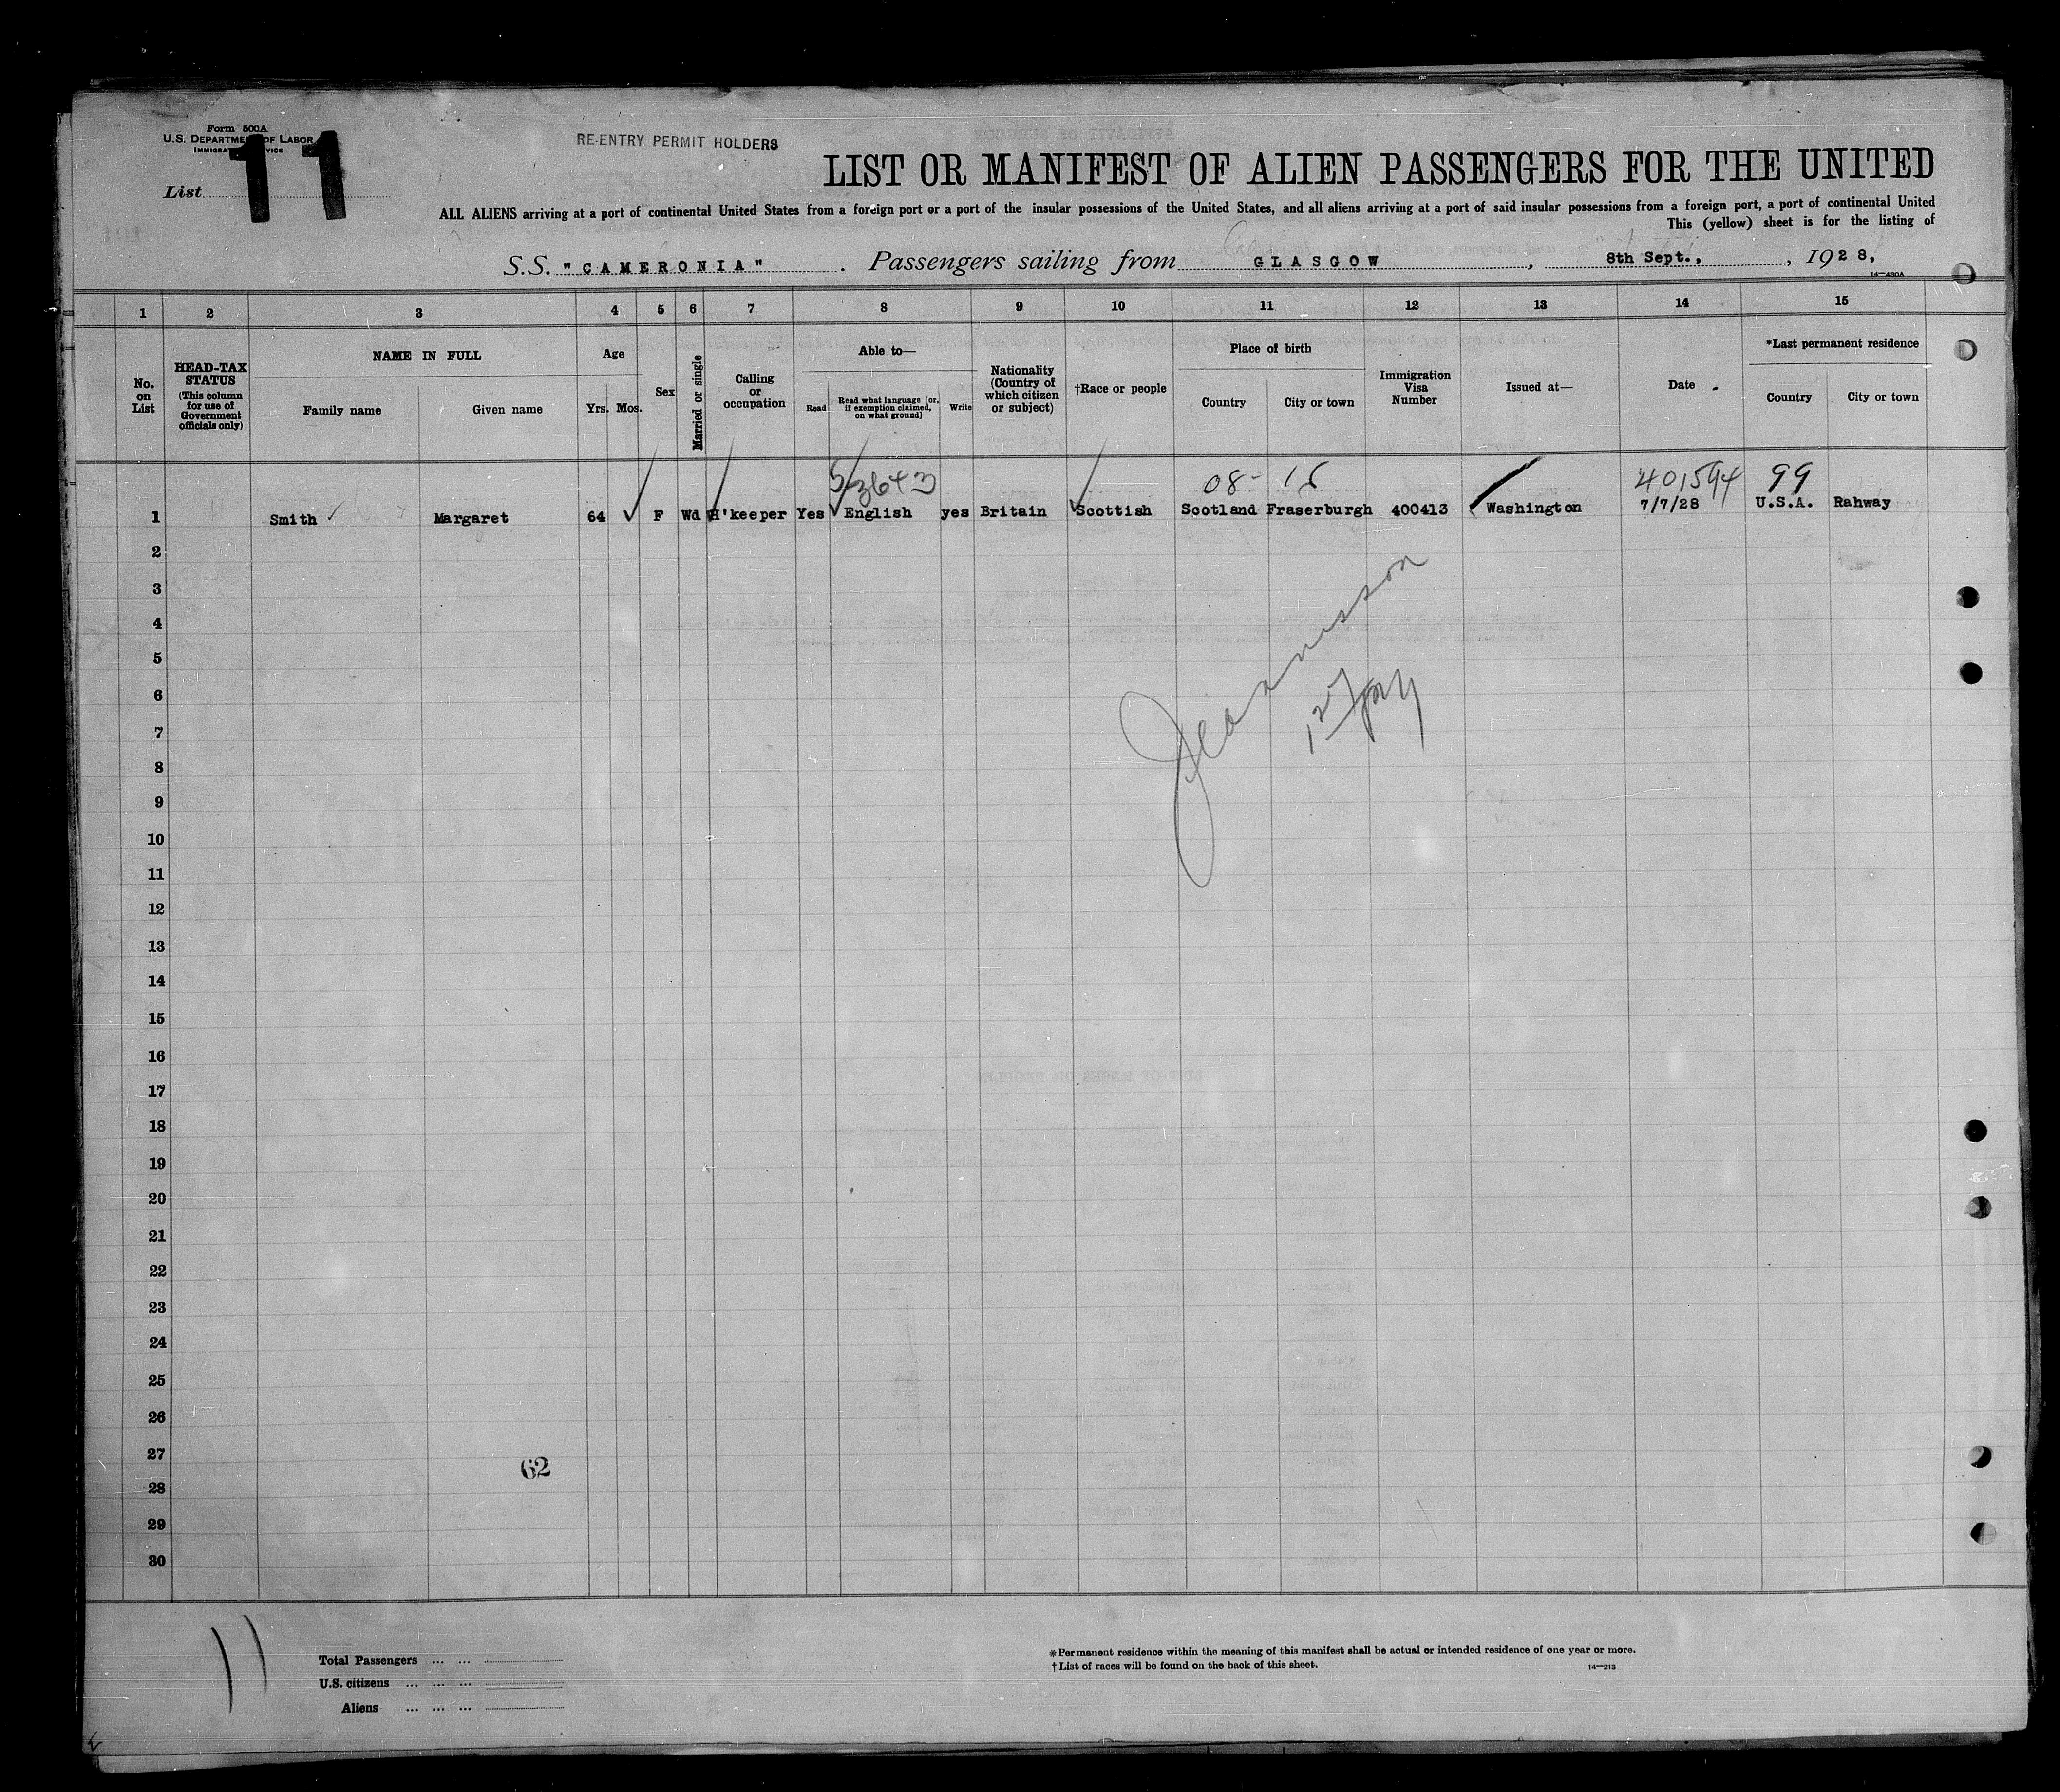 Form 500A
U.S. DEPARTMENT OF LABOR
IMMIGRATION SERVICE
List 11
RE-ENTRY PERMIT HOLDERS
LIST OR MANIFEST OF ALIEN PASSENGERS FOR THE UNITED
ALL ALIENS arriving at a port of continental United States from a foreign port or a port of the insular possessions of the United States, and all aliens arriving at a port of said insular possessions from a foreign port, a port of continental United
This (yellow) sheet is for the listing of
S.S. "CAMERONIA". Passengers sailing from GLASGOW, 8th Sept., 1928,
14—480A
1 2 3 4 5 6 7 8 9 10 11 12 13 14 15
No. on List
HEAD-TAX STATUS (This column for use of Government officials only)
NAME IN FULL
Family name Given name
Age
Yrs. Mos.
Sex
Married or single
Calling or occupation
Able to—
Read
Read what language [or, if exemption claimed, on what ground]
Write
Nationality (Country of which citizen or subject)
†Race or people
Place of birth
Country City or town
Immigration Visa Number
Issued at—
Date
*Last permanent residence
Country City or town
5/3643 08- 16 401594 99
1 Smith Margaret 64 F Wd H'keeper Yes English yes Britain Scottish Scotland Fraserburgh 400413 Washington 7/7/28 U.S.A. Rahway
2
3
4
5
6
7
8
9
10
11
12
13
14
15
16
17
18
19
20
21
22
23
24
25
26
27
62
28
29
30
11
Total Passengers ... ...
U.S. citizens ... ... ...
Aliens ... ... ...
*Permanent residence within the meaning of this manifest shall be actual or intended residence of one year or more.
†List of races will be found on the back of this sheet.
14—213